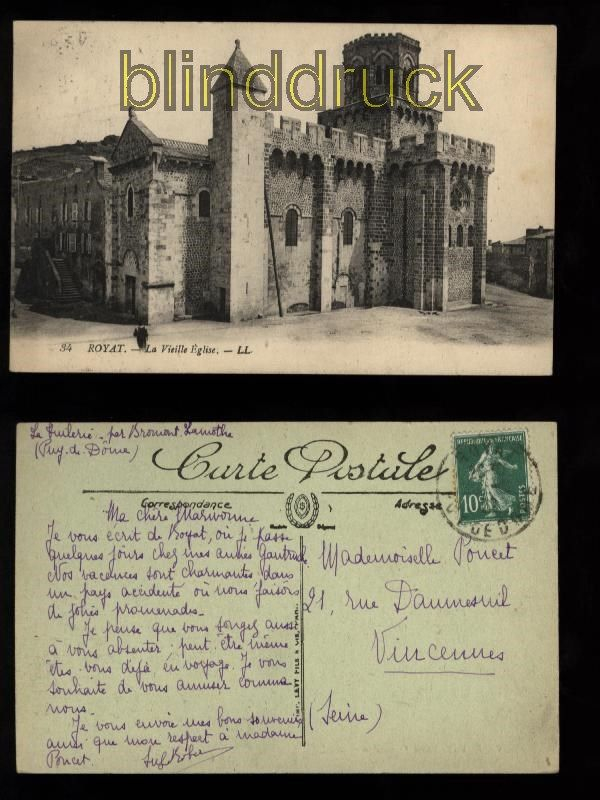 blinddruck
34 ROYAT. — La Vieille Église. — LL.
La Tuilerie par Bromont-Lamothe
(Puy-de-Dôme)
Carte Postale
Correspondance
Adresse
REPUBLIQUE FRANÇAISE
10c
POSTES
Ma chère Marivonne
Je vous écrit de Royat, où je passe
quelques jours chez mes amies
Nos vacances sont charmantes, dans
un pays accidenté où nous faisons
de jolies promenades.
Je pense que vous songez aussi
à vous absenter, peut être même
êtes vous déjà en voyage. Je vous
souhaite de vous amuser comme
nous.
Je vous envoie mes bons souvenirs
ainsi que mon respect à madame
Poncet.
IMP. LEVY FILS & CIE, PARIS
Mademoiselle Poncet
21, rue Daumesnil
Vincennes
(Seine)